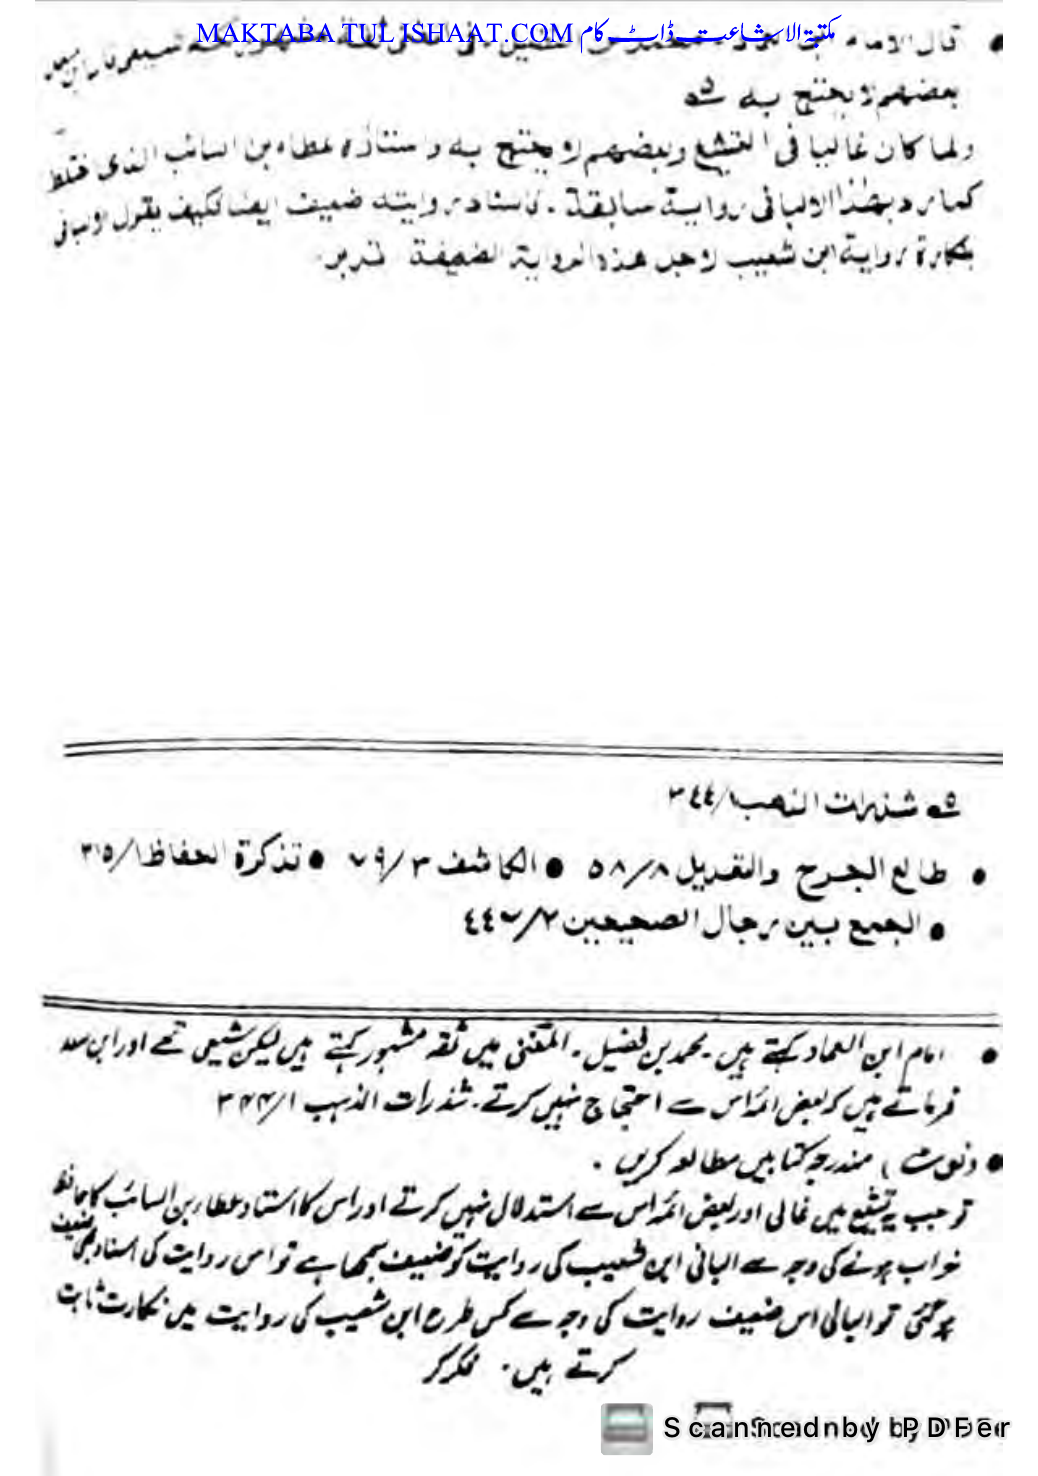 MAKTABA TUL ISHAAT.COM مکتبۃ الاشاعت ڈاٹ کام
قال الامام
بعضهم لا يحتج به
ولما كان غاليا فى التشيع وبعضهم لا يحتج به واستاذه عطاء بن السائب الذى
كما رد بهذا الالبانى رواية سابقة . فاسناد روايته ضعيف ايضا فكيف يقول الالبانى
بنكارة رواية ابن شعيب لاجل هذه الرواية الضعيفة فتدبر.
شذرات الذهب ١/٣٤٤
● طالع الجرح والتعديل ٨/٥٨ ● الكاشف ٣/٧٩ ● تذكرة الحفاظ ١/٣١٥
● الجمع بين رجال الصحيحين ٢/٤٤٧
● امام ابن العماد کہتے ہیں۔ محمد بن فضیل۔ المغنی میں ثقہ مشہور کہتے ہیں لیکن شیعی تھے اور ابن سعد
فرماتے ہیں کہ بعض ائمہ اس سے احتجاج نہیں کرتے۔ شذرات الذہب ۱/۳۴۴
● (نوٹ) مندرجہ کتابیں مطالعہ کریں۔
تو جب یہ تشیع میں غالی اور بعض ائمہ اس سے استدلال نہیں کرتے اور اس کا استاد عطاء بن السائب کا حافظہ
خراب ہونے کی وجہ سے البانی ابن شعیب کی روایت کو ضعیف سمجھا ہے تو اس روایت کی اسناد بھی ضعیف
ہو گئی تو البانی اس ضعیف روایت کی وجہ سے کس طرح ابن شعیب کی روایت میں نکارت ثابت
کرتے ہیں۔ فکر کر
Scanned by PDFer